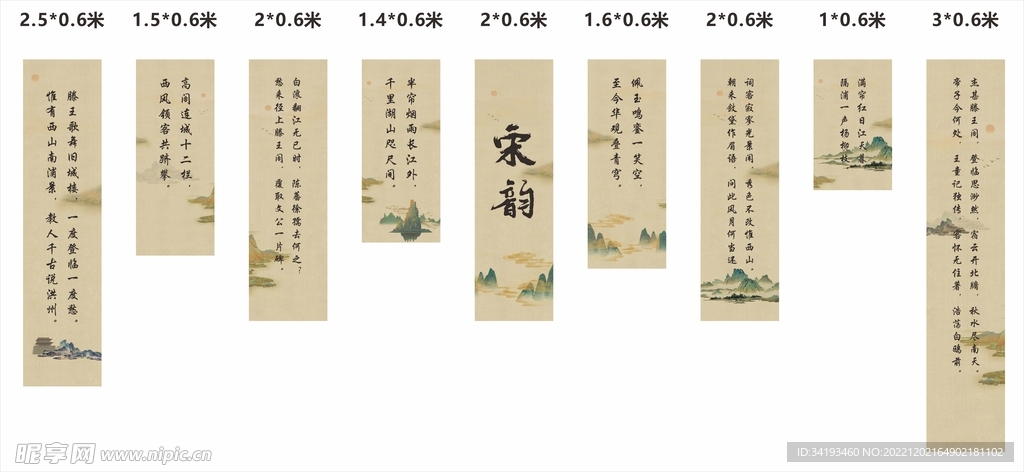 2.5*0.6米
1.5*0.6米
2*0.6米
1.4*0.6米
2*0.6米
1.6*0.6米
2*0.6米
1*0.6米
3*0.6米
滕王歌舞旧城楼，一度登临一度愁。
惟有西山南浦景，教人千古说洪州。
高阁连城十二栏，
西风领客共跻攀。
白浪翻江无已时，陈蕃徐孺去何之？
愁来径上滕王阁，覆取文公一片碑。
半帘烟雨长江外，
千里湖山咫尺间。
宋
韵
佩玉鸣銮一笑空，
至今华观叠青穹。
词客寂寥光景闲，秀色不改惟西山。
朝来敛黛作眉语，问此风月何当还
满帘红日江天暮
隔浦一声杨柳枝
杰甚滕王阁，登临思渺然，宿云开北牖，秋水尽南天。
帝子今何处，王董记独传，客怀无住著，浩荡白鸥前。
昵享网 www.nipic.cn
ID:34193460 NO:20221202164902181102